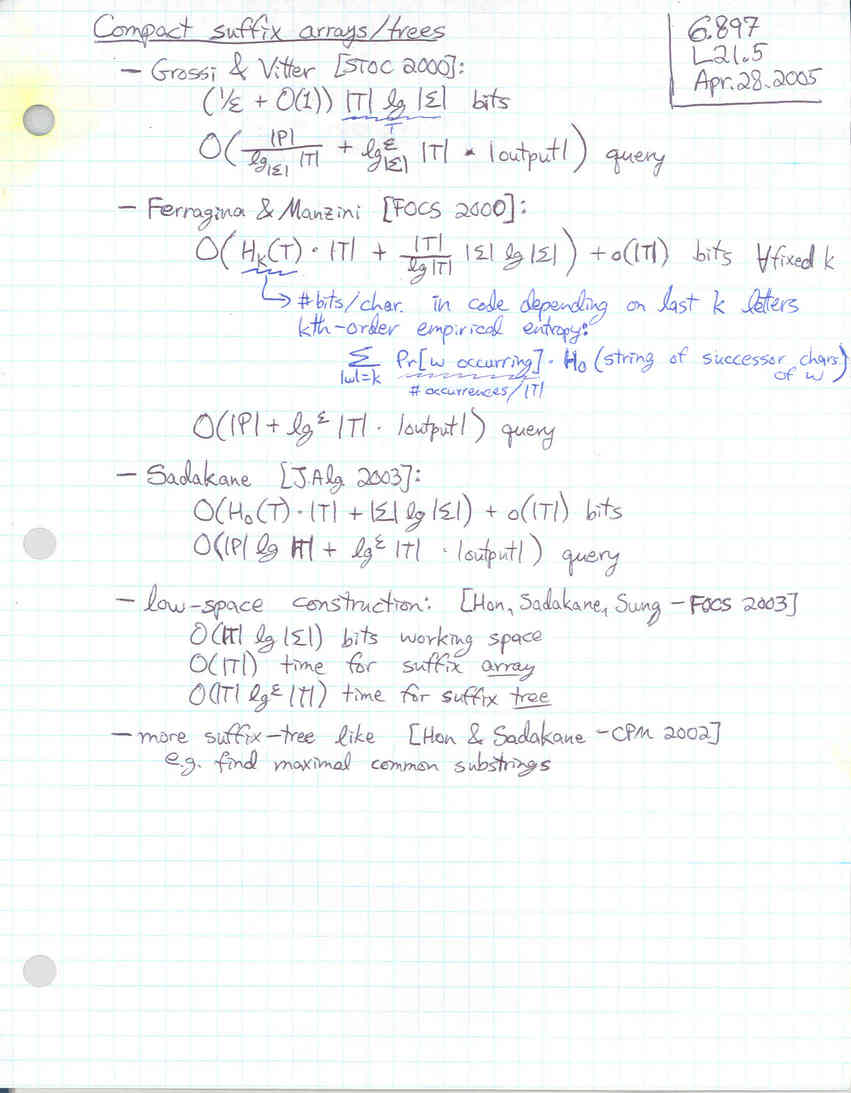 Compact suffix arrays/trees
6.897
L21.5
Apr. 28. 2005
— Grossi & Vitter [STOC 2000]:
(1/ε + O(1)) |T| lg |Σ| bits
T
O(|P| / lg_|Σ| |T| + lg^ε_|Σ| |T| · |output|) query
— Ferragina & Manzini [FOCS 2000]:
O(H_k(T) · |T| + |T| / lg|T| |Σ| lg |Σ|) + o(|T|) bits ∀fixed k
↳ #bits/char. in code depending on last k letters
kth-order empirical entropy:
Σ_|w|=k Pr[w occurring] · H₀ (string of successor chars)
of w
# occurrences/|T|
O(|P| + lg^ε |T| · |output|) query
— Sadakane [J.Alg. 2003]:
O(H₀(T) · |T| + |Σ| lg |Σ|) + o(|T|) bits
O(|P| lg |T| + lg^ε |T| · |output|) query
— low-space construction: [Hon, Sadakane, Sung — FOCS 2003]
O(|T| lg |Σ|) bits working space
O(|T|) time for suffix array
O(|T| lg^ε |T|) time for suffix tree
— more suffix-tree like [Hon & Sadakane — CPM 2002]
e.g. find maximal common substrings